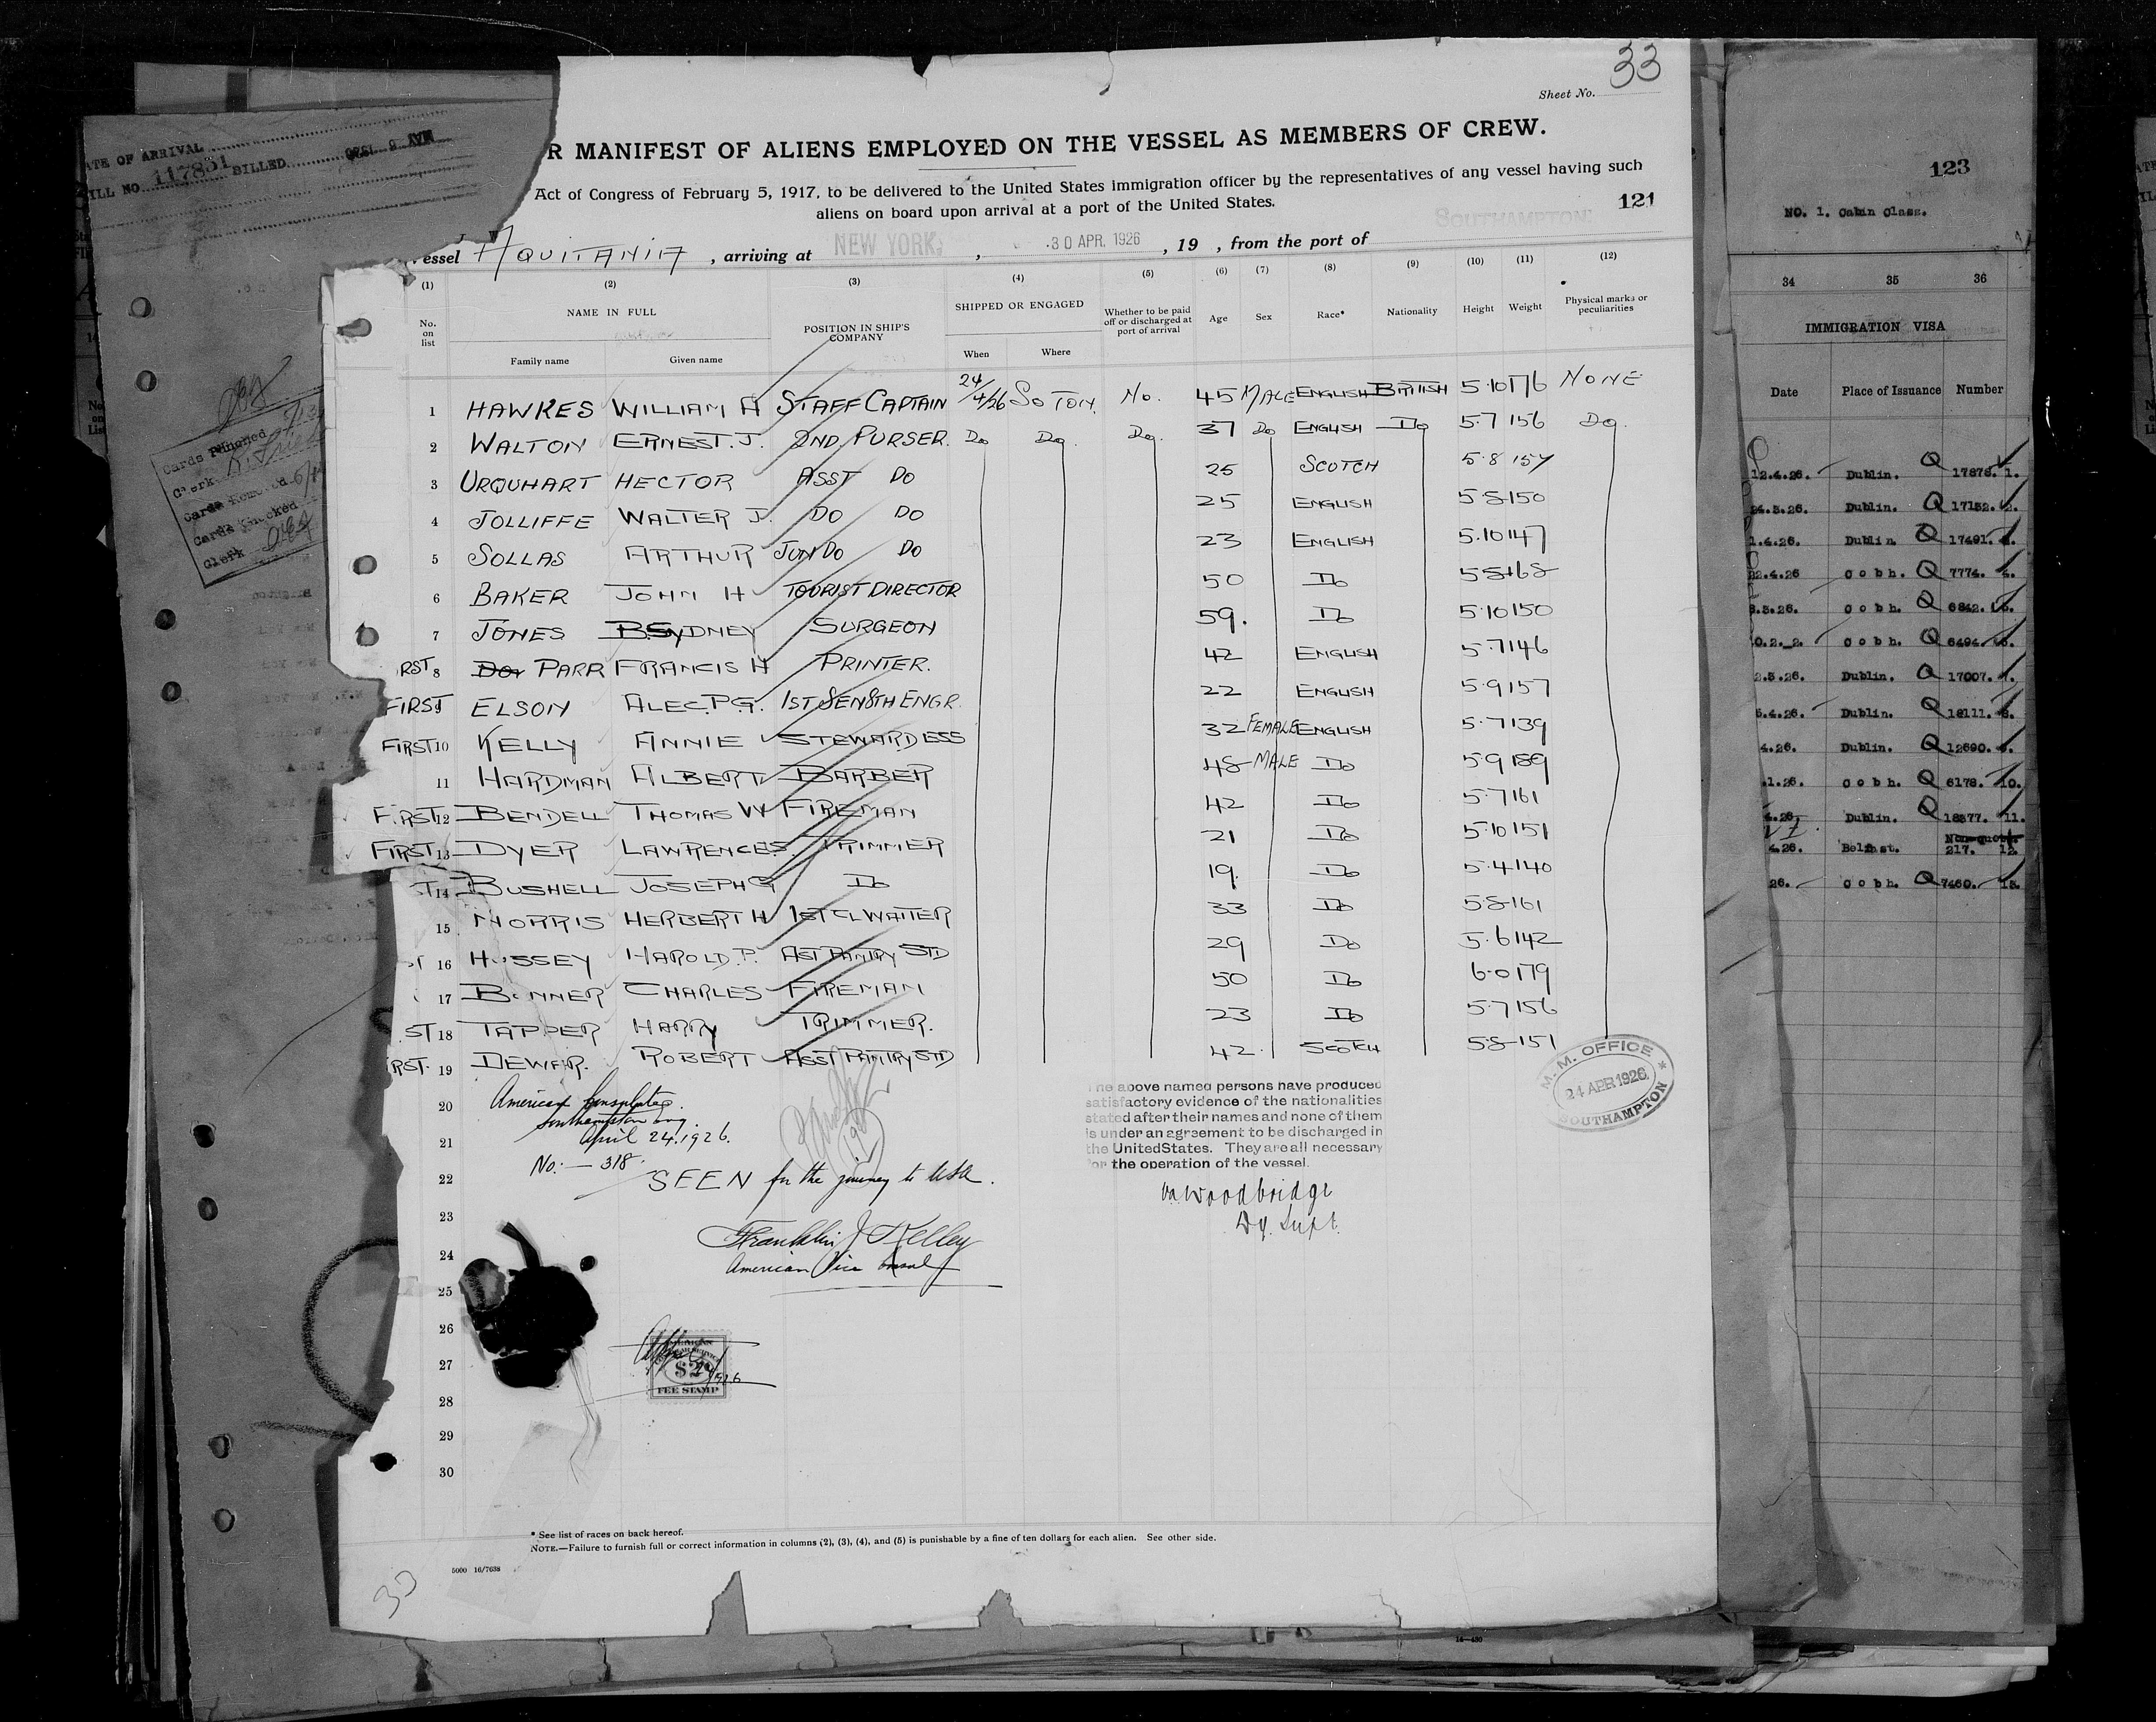 33
Sheet No.
R MANIFEST OF ALIENS EMPLOYED ON THE VESSEL AS MEMBERS OF CREW.
Act of Congress of February 5, 1917, to be delivered to the United States immigration officer by the representatives of any vessel having such
aliens on board upon arrival at a port of the United States.
121
SOUTHAMPTON
essel AQUITANIA , arriving at NEW YORK , 30 APR. 1926 , 19 , from the port of
(1) (2) (3) (4) (5) (6) (7) (8) (9) (10) (11) (12)
No. on list NAME IN FULL POSITION IN SHIP'S COMPANY SHIPPED OR ENGAGED Whether to be paid off or discharged at port of arrival Age Sex Race* Nationality Height Weight Physical marks or peculiarities
Family name Given name When Where
1 HAWKES WILLIAM A STAFF CAPTAIN 24/4/26 SO TON. No. 45 MALE ENGLISH BRITISH 5.10 176 NONE
2 WALTON ERNEST. J. 2ND PURSER. Do Do. Do. 37 Do ENGLISH Do 5.7 156 Do.
3 URQUHART HECTOR ASST DO 25 SCOTCH 5.8 157
4 JOLLIFFE WALTER J. DO DO 25 ENGLISH 5.8 150
5 SOLLAS ARTHUR JUN DO DO 23 ENGLISH 5.10 147
6 BAKER JOHN H TOURIST DIRECTOR 50 Do 5.8 168
7 JONES B SYDNEY SURGEON 59. Do 5.10 150
RST 8 Do PARR FRANCIS H PRINTER. 42 ENGLISH 5.7 146
FIRST 9 ELSON ALEC. P.G. 1ST SEN 8TH ENGR. 22 ENGLISH 5.9 157
FIRST 10 KELLY ANNIE STEWARDESS 32 FEMALE ENGLISH 5.7 139
11 HARDMAN ALBERT BARBER 48 MALE Do 5.9 189
FIRST 12 BENDELL THOMAS W FIREMAN 42 Do 5.7 161
FIRST 13 DYER LAWRENCE S TRIMMER 21 Do 5.10 151
ST 14 BUSHELL JOSEPH G Do 19. Do 5.4 140
15 MORRIS HERBERT H 1ST CL WAITER 33 Do 5.8 161
ST 16 HUSSEY HAROLD. P. AST PANTRY STD 29 Do 5.6 142
17 BONNER CHARLES FIREMAN 50 Do 6.0 179
ST 18 TAPPER HARRY TRIMMER. 23 Do 5.7 156
RST. 19 DEWAR. ROBERT ASST PANTRY STD 42. SCOTCH 5.8 151
20
21
22
23
24
25
26
27
28
29
30
American Consulate.
Southampton Eng.
April 24. 1926.
No:— 318
SEEN for the journey to USA.
Franklin J Kelley
American Vice Consul
The above named persons have produced
satisfactory evidence of the nationalities
stated after their names and none of them
is under an agreement to be discharged in
the United States. They are all necessary
for the operation of the vessel.
Woodbridge
Dy. Supt.
M. M. OFFICE
24 APR 1926
SOUTHAMPTON
$2
FEE STAMP
1926
* See list of races on back hereof.
NOTE.—Failure to furnish full or correct information in columns (2), (3), (4), and (5) is punishable by a fine of ten dollars for each alien. See other side.
5000 16/7638
14—430
ATE OF ARRIVAL
ILL NO 117851 BILLED
Cards Punched
Clerk
Cards Checked
Clerk
123
NO. 1. Cabin Class.
34 35 36
IMMIGRATION VISA
Date Place of Issuance Number
12.4.26. Dublin. Q 17878. 1.
24.3.26. Dublin. Q 17152. 2.
1.4.26. Dublin. Q 17491.
22.4.26 Cobh. Q 7774. 4.
3.26. Cobh. Q 6842. 5.
Cobh. Q 6494.
3.26. Dublin. Q 17007. 7.
4.26. Dublin. Q 18111. 8.
4.26. Dublin. Q 12690.
1.26. Cobh. Q 6178. 10.
4.26. Dublin. Q 18577. 11.
4.26. Belfast. Non-quota 217. 12.
26. Cobh. Q 7460. 13.